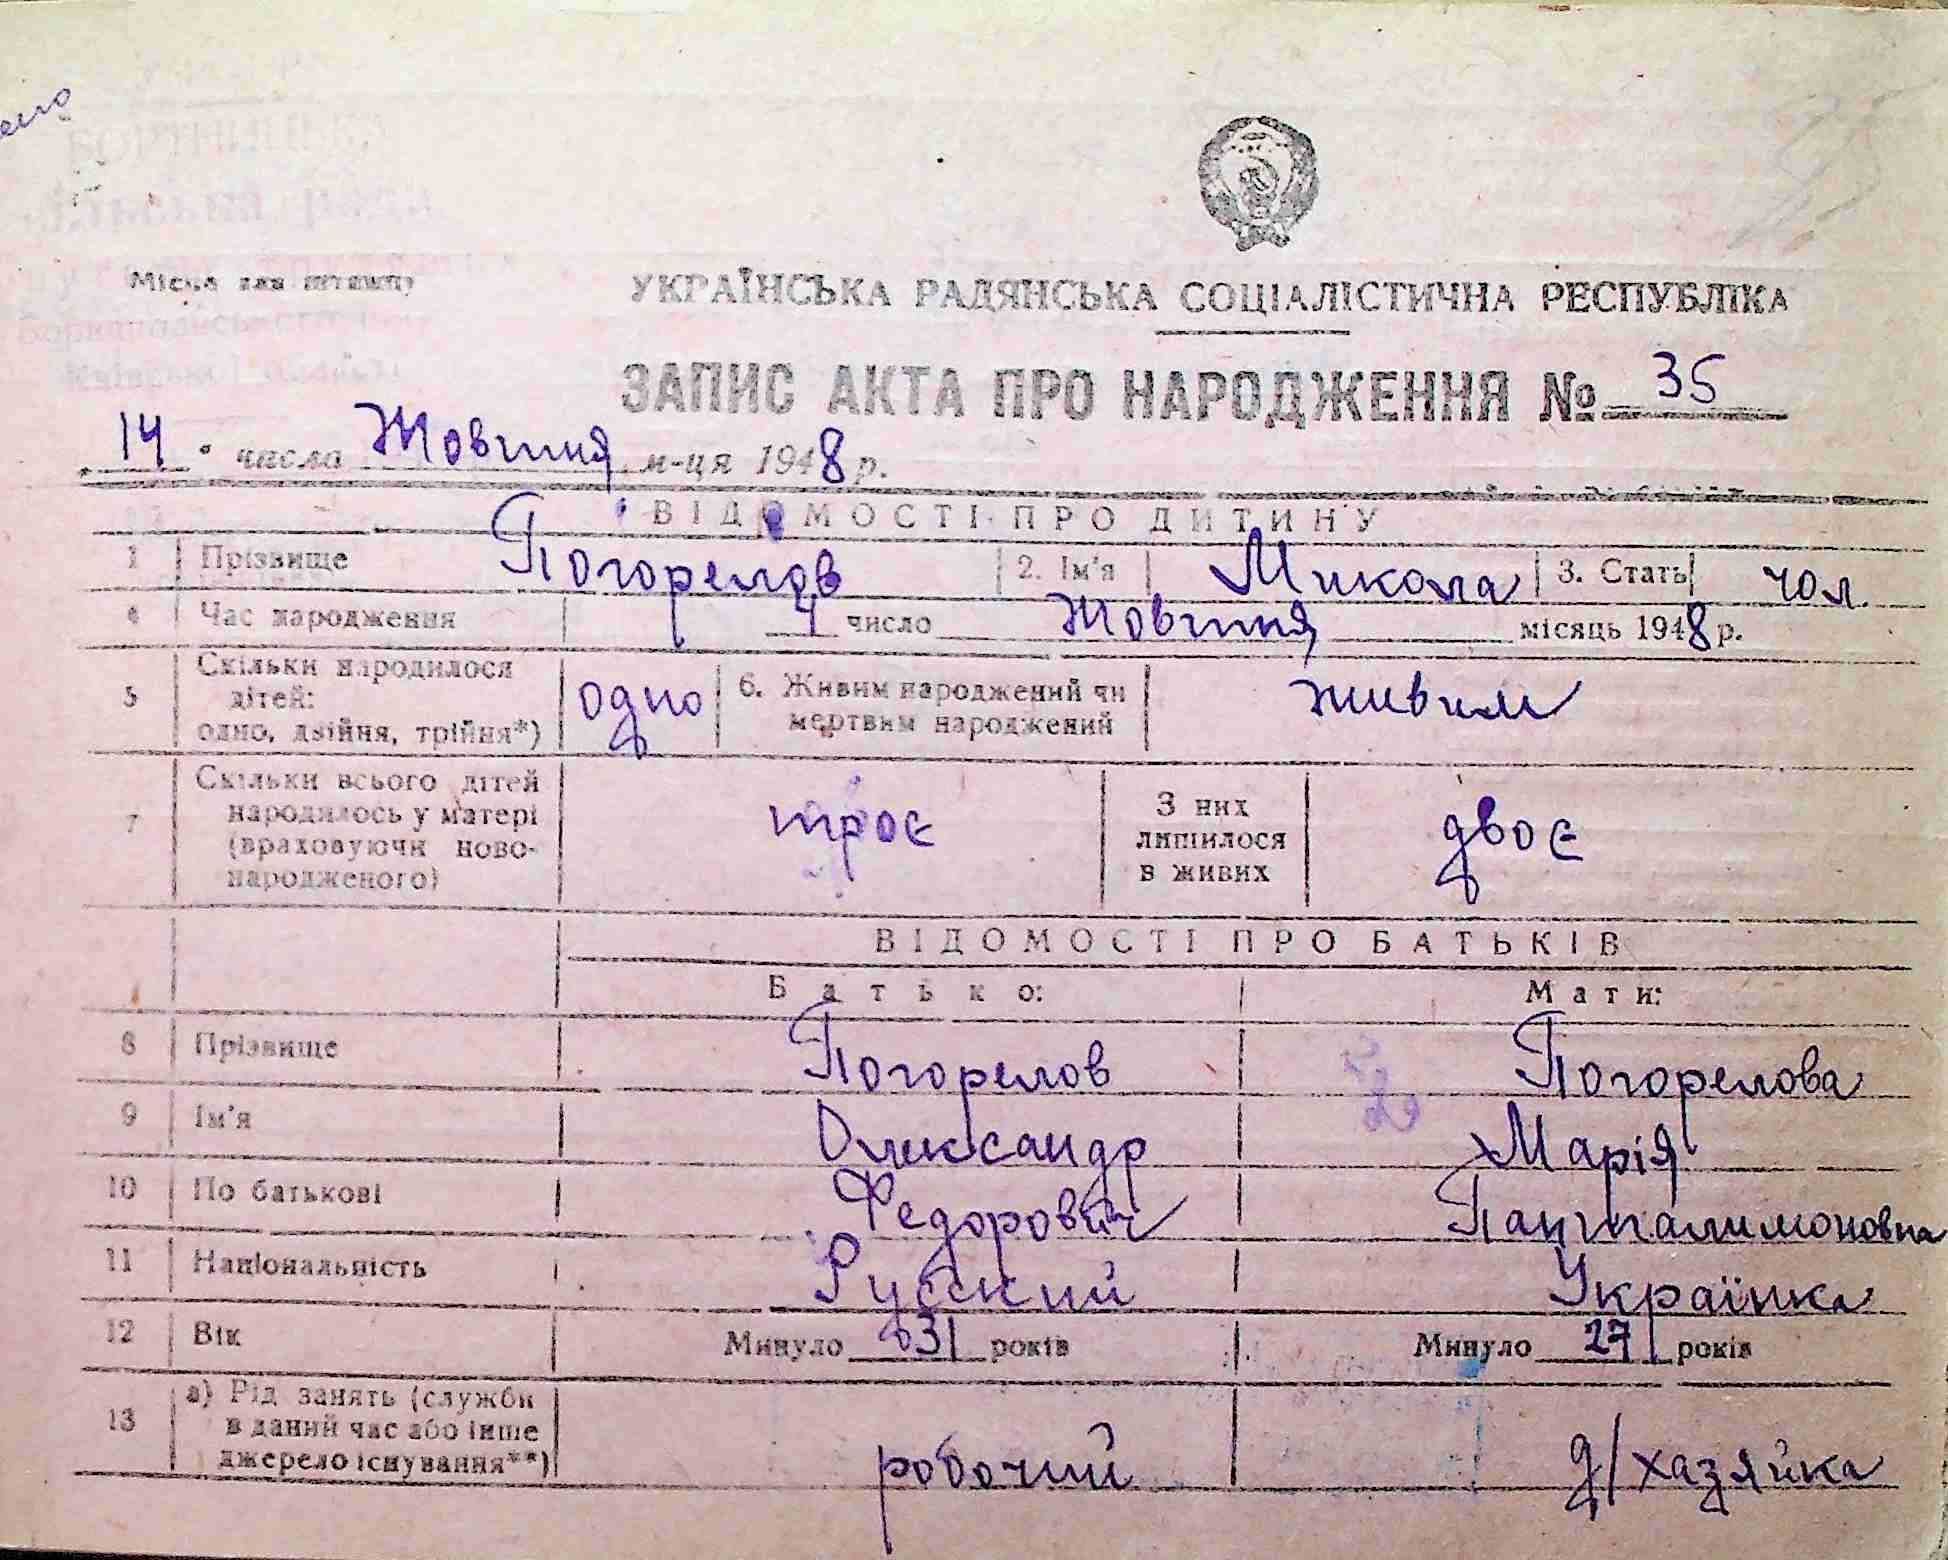 Місце для штампу
УКРАЇНСЬКА РАДЯНСЬКА СОЦІАЛІСТИЧНА РЕСПУБЛІКА
ЗАПИС АКТА ПРО НАРОДЖЕННЯ № 35
„14" числа Жовтня м-ця 1948 р.
ВІДОМОСТІ ПРО ДИТИНУ
1 Прізвище Погорелов 2. Ім'я Микола 3. Стать чол.
4 Час народження 4 число Жовтня місяць 1948 р.
5 Скільки народилося дітей: одно, двійня, трійня*) одно 6. Живим народжений чи мертвим народжений живим
7 Скільки всього дітей народилось у матері (враховуючи новонародженого) троє З них лишилося в живих двоє
ВІДОМОСТІ ПРО БАТЬКІВ
Батько: Мати:
8 Прізвище Погорелов Погорелова
9 Ім'я Олександр Марія
10 По батькові Федорович Пантталимоновна
11 Національність Русский Українка
12 Вік Минуло 31 років Минуло 27 років
13 а) Рід занять (служби в даний час або інше джерело існування**) робочий д/хазяйка